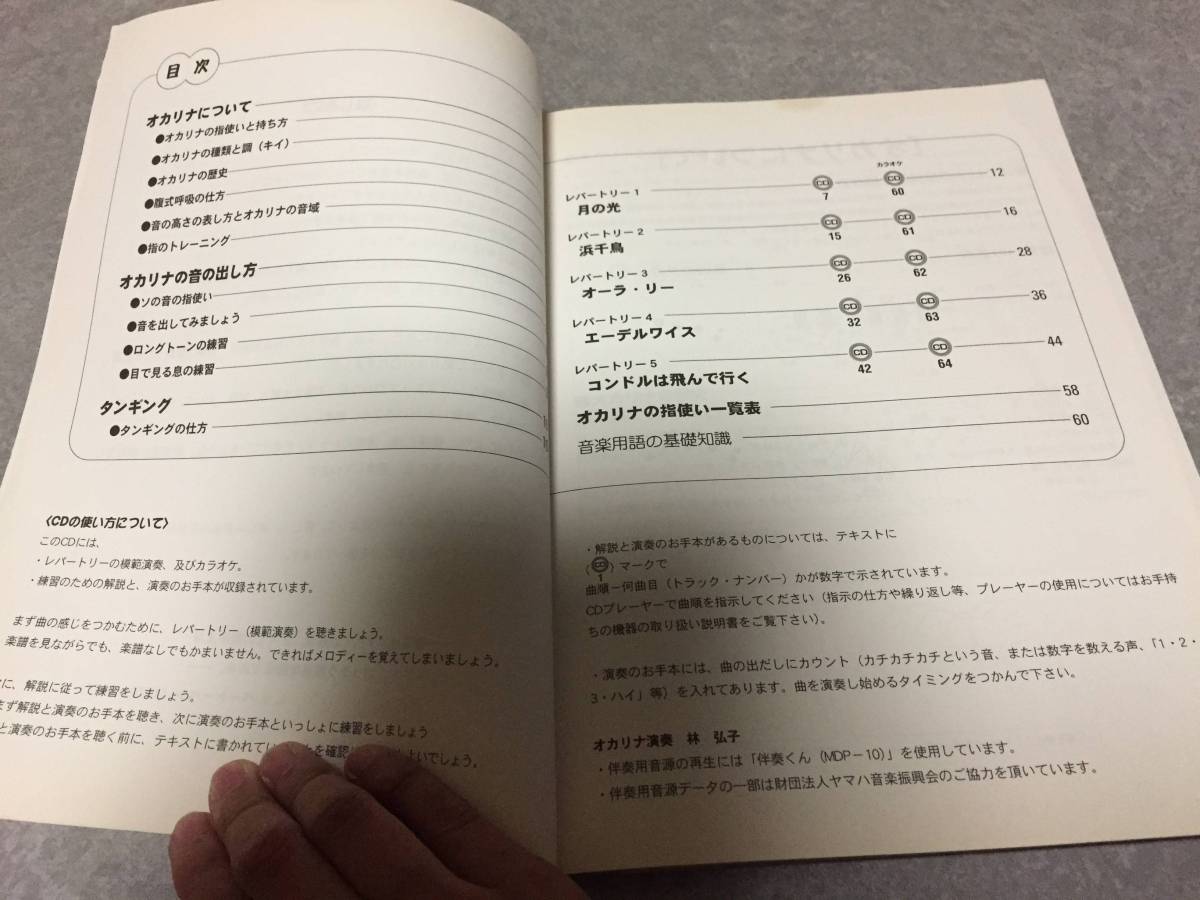 目次
オカリナについて
●オカリナの指使いと持ち方
●オカリナの種類と調（キイ）
●オカリナの歴史
●腹式呼吸の仕方
●音の高さの表し方とオカリナの音域
●指のトレーニング
オカリナの音の出し方
●ソの音の指使い
●音を出してみましょう
●ロングトーンの練習
●目で見る息の練習
タンギング
●タンギングの仕方
〈CDの使い方について〉
このCDには、
・レパートリーの模範演奏、及びカラオケ。
・練習のための解説と、演奏のお手本が収録されています。
まず曲の感じをつかむために、レパートリー（模範演奏）を聴きましょう。
楽譜を見ながらでも、楽譜なしでもかまいません。できればメロディーを覚えてしまいましょう。
に、解説に従って練習をしましょう。
まず解説と演奏のお手本を聴き、次に演奏のお手本といっしょに練習をしましょう
と演奏のお手本を聴く前に、テキストに書かれてい を確認 よいでしょう。
カラオケ
レパートリー1 CD CD 12
月の光 7 60
レパートリー2 CD CD 16
浜千鳥 15 61
レパートリー3 CD CD 28
オーラ・リー 26 62
レパートリー4 CD CD 36
エーデルワイス 32 63
レパートリー5 CD CD 44
コンドルは飛んで行く 42 64
オカリナの指使い一覧表 58
音楽用語の基礎知識 60
・解説と演奏のお手本があるものについては、テキストに
（CD 1）マークで
曲順－何曲目（トラック・ナンバー）かが数字で示されています。
CDプレーヤーで曲順を指示してください（指示の仕方や繰り返し等、プレーヤーの使用についてはお手持
ちの機器の取り扱い説明書をご覧下さい）。
・演奏のお手本には、曲の出だしにカウント（カチカチカチという音、または数字を数える声、「1・2・
3・ハイ」等）を入れてあります。曲を演奏し始めるタイミングをつかんで下さい。
オカリナ演奏 林 弘子
・伴奏用音源の再生には「伴奏くん（MDP－10）」を使用しています。
・伴奏用音源データの一部は財団法人ヤマハ音楽振興会のご協力を頂いています。